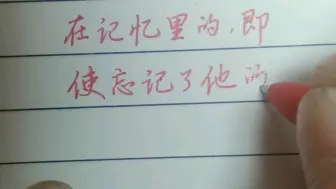 在记忆里的,即
使忘记了他